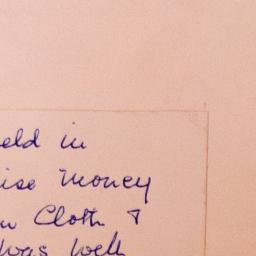 eld in
ise money
Cloth &
was well